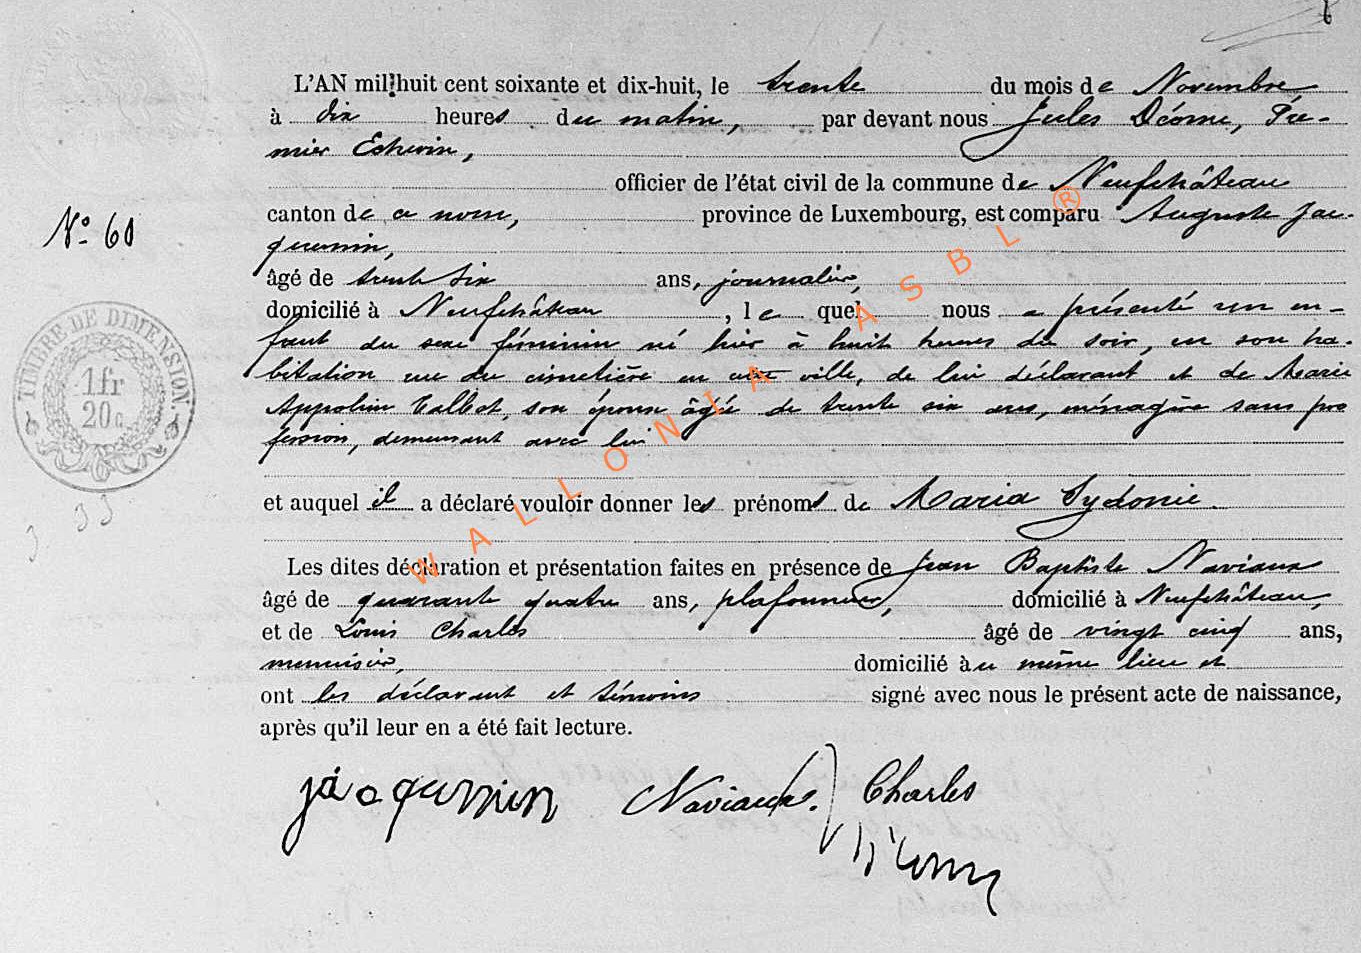 L'AN mil huit cent soixante et dix-huit, le trente du mois de Novembre
à dix heures du matin, par devant nous Jules Dcome, Pre-
mier Echevin,
officier de l'état civil de la commune de Neufchâteau
canton de ce nom, province de Luxembourg, est comparu Auguste Jac-
quemin,
N° 60
âgé de trente six ans, journalier,
domicilié à Neufchâteau, le quel nous a présenté un en-
fant du sexe féminin né hier à huit heures du soir, en son ha-
bitation rue du cimetière en cette ville, de lui déclarant et de Marie
Appoline Talbot, son épouse âgée de trente six ans, ménagère sans pro
fession, demeurant avec lui
et auquel il a déclaré vouloir donner les prénoms de Maria Sydonie.
Les dites déclaration et présentation faites en présence de Jean Baptiste Naviaux
âgé de quarante quatre ans, plafonneur, domicilié à Neufchâteau,
et de Louis Charles âgé de vingt cinq ans,
menuisier, domicilié au même lieu et
ont les déclarant et témoins signé avec nous le présent acte de naissance,
après qu'il leur en a été fait lecture.
jacquemin Naviaux. Charles
TIMBRE DE DIMENSION.
1fr
20c
WALLONIA ASBL ®